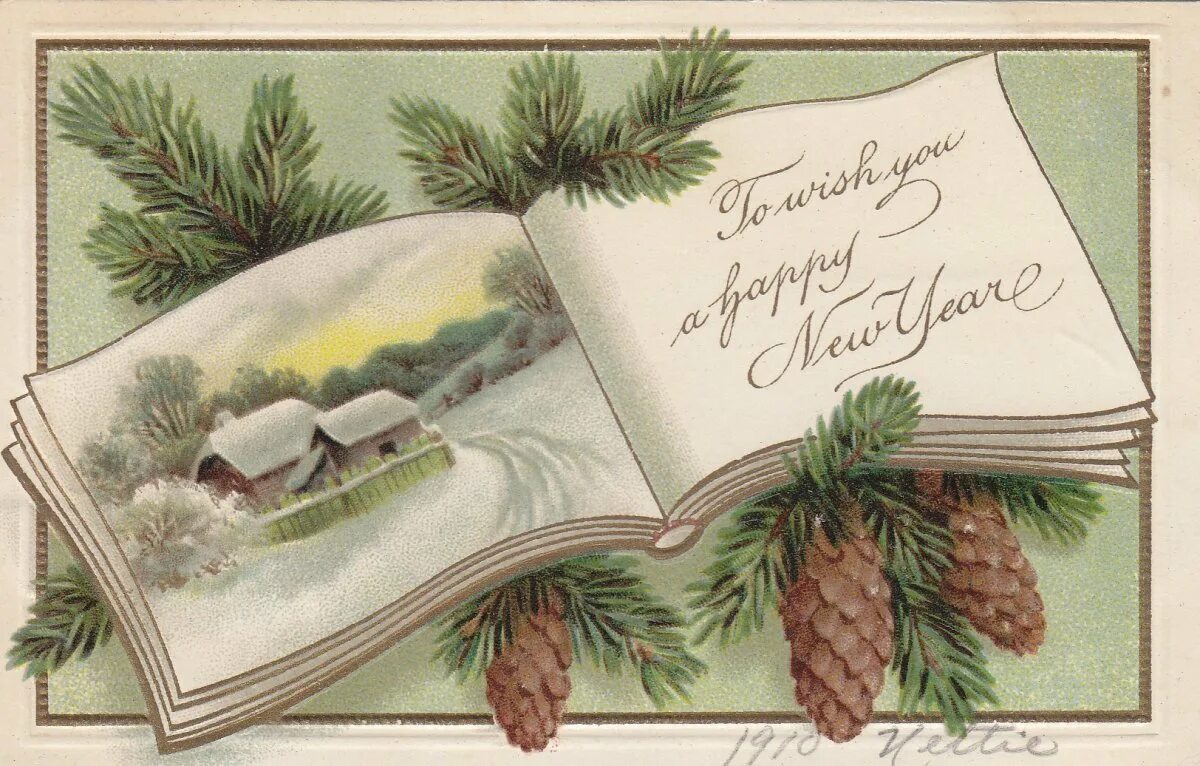 To wish you
a happy
New Year
1910 Nettie